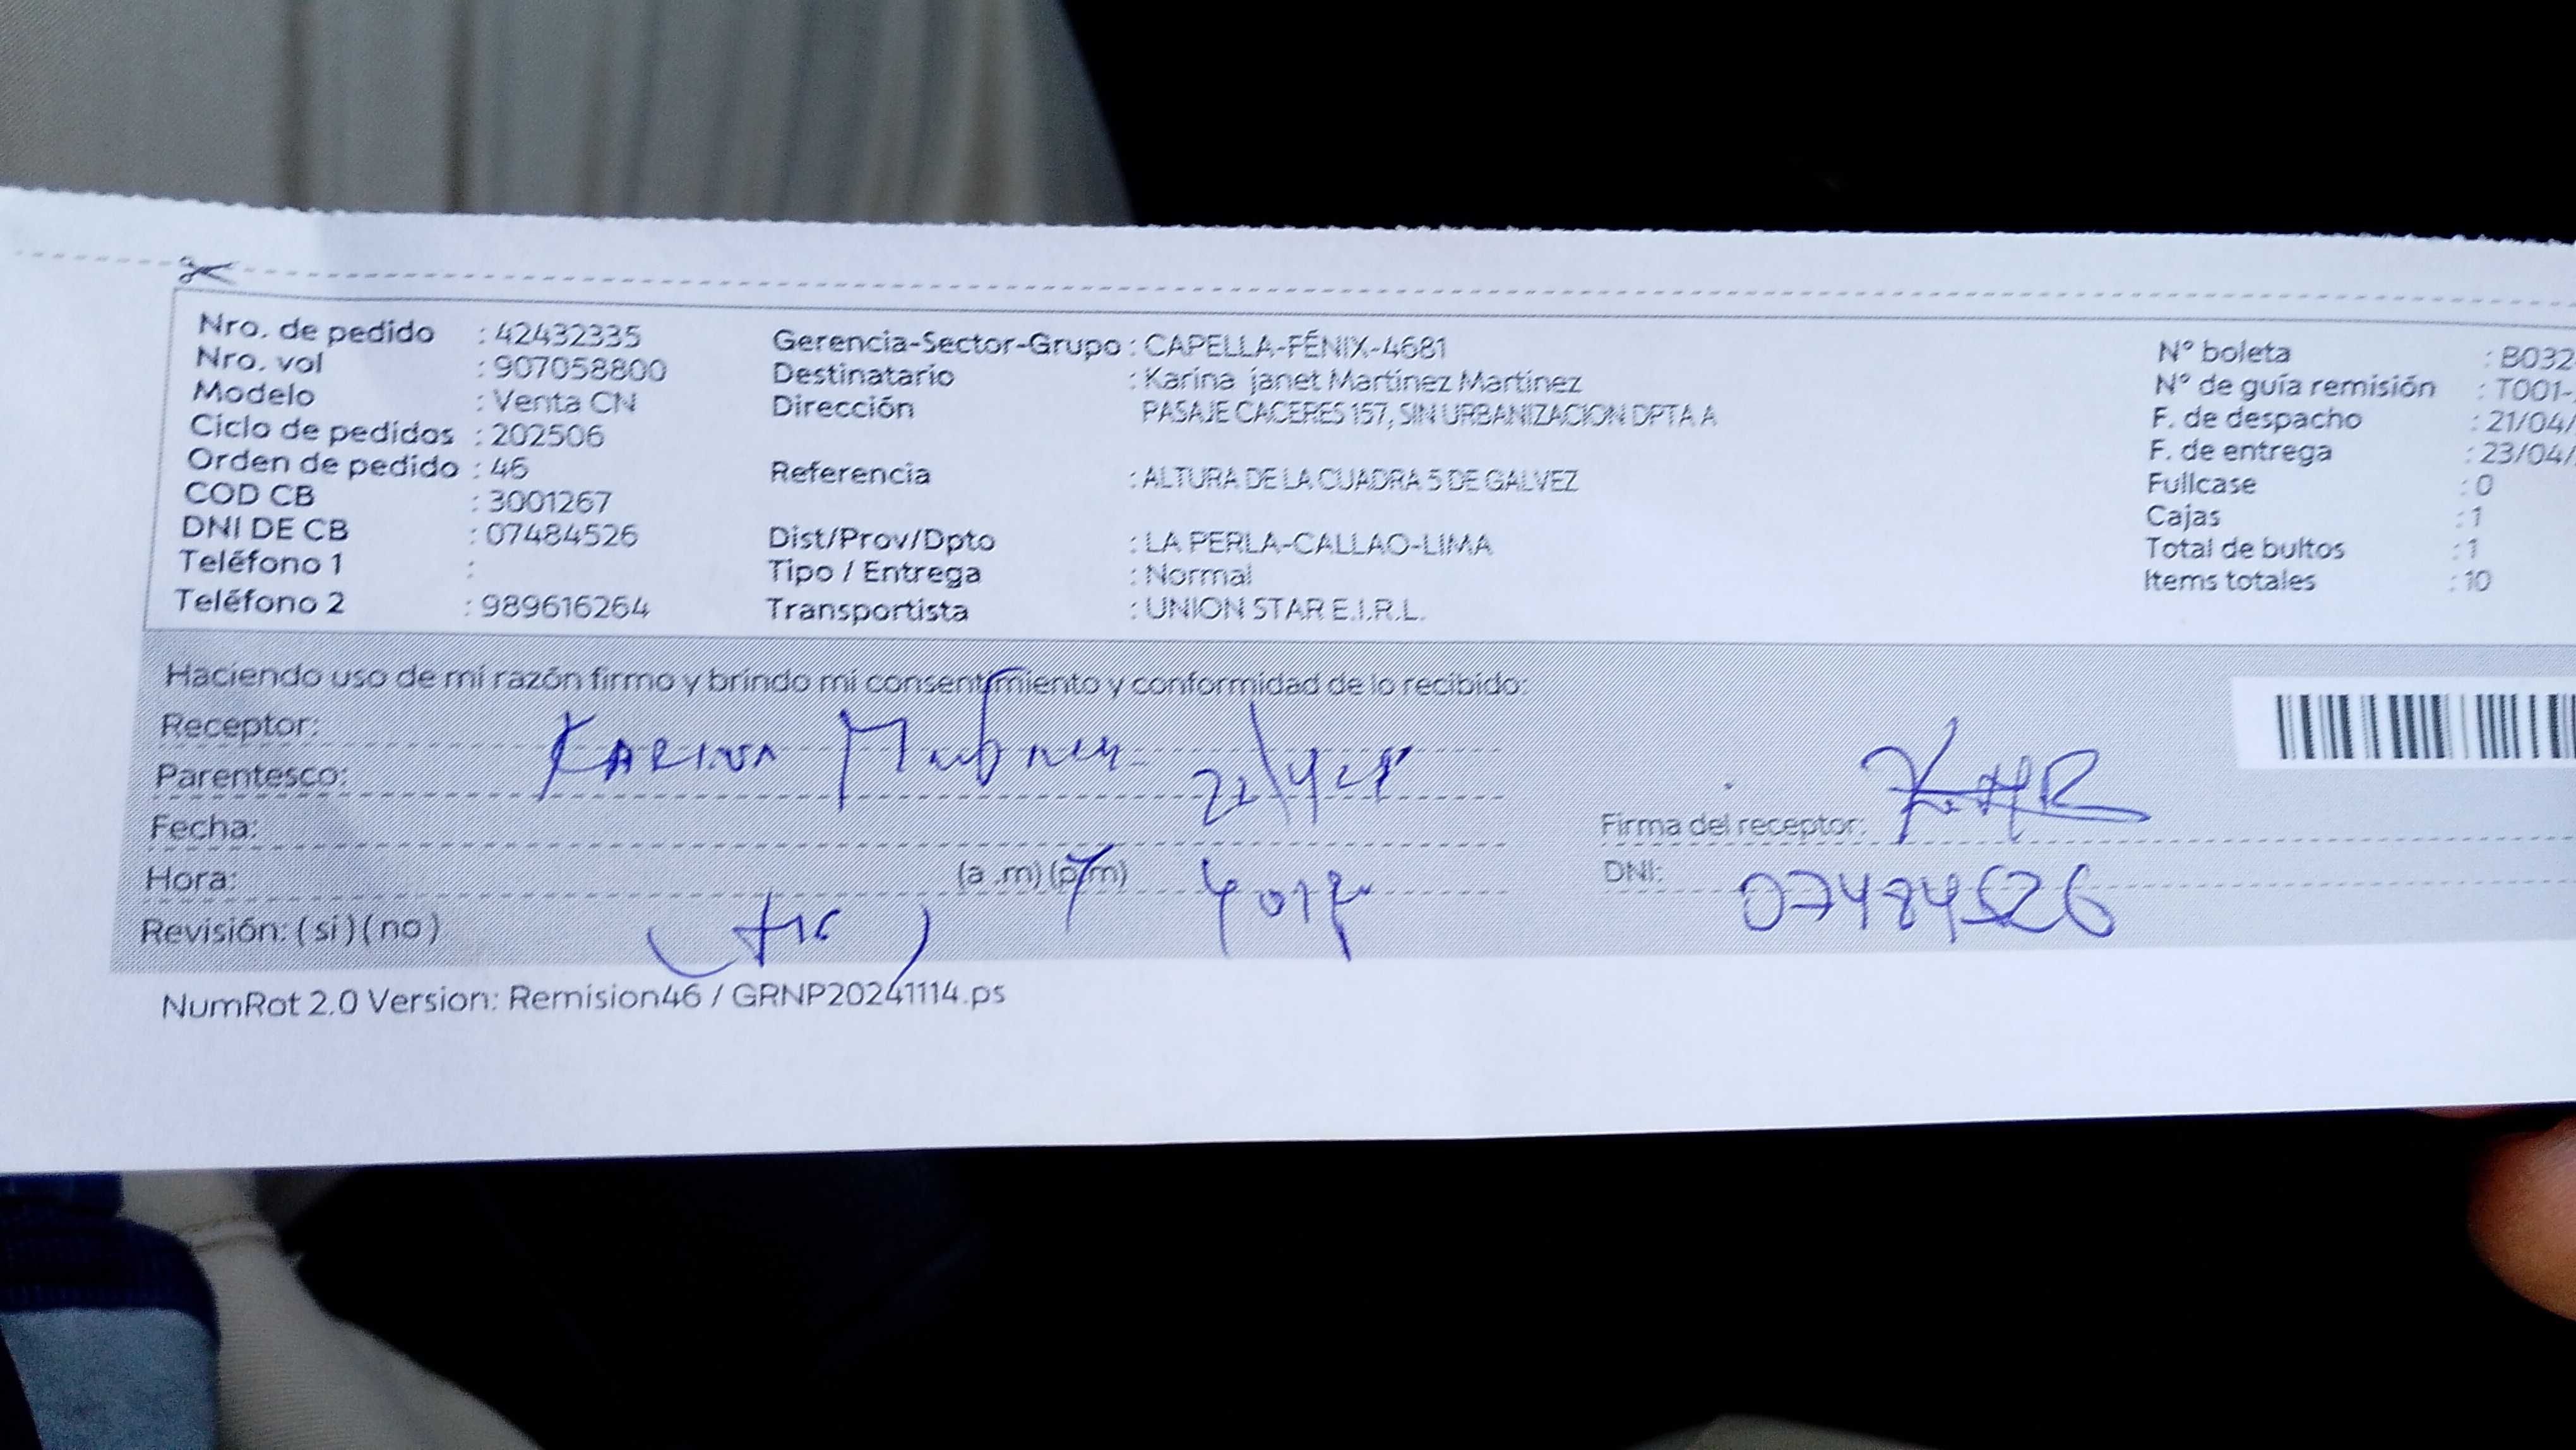 Nro. de pedido : 42432335
Nro. vol : 907058800
Modelo : Venta CN
Ciclo de pedidos : 202506
Orden de pedido : 46
COD CB : 3001267
DNI DE CB : 07484526
Teléfono 1 :
Teléfono 2 : 989616264
Gerencia-Sector-Grupo : CAPELLA-FÉNIX-4681
Destinatario : Karina janet Martinez Martinez
Dirección PASAJE CACERES 157, SIN URBANIZACION DPTA A
Referencia : ALTURA DE LA CUADRA 5 DE GALVEZ
Dist/Prov/Dpto : LA PERLA-CALLAO-LIMA
Tipo / Entrega : Normal
Transportista : UNION STAR E.I.R.L.
N° boleta : B032
N° de guía remisión : T001-
F. de despacho : 21/04/
F. de entrega : 23/04/
Fullcase : 0
Cajas : 1
Total de bultos : 1
Items totales : 10
Haciendo uso de mi razón firmo y brindo mi consentimiento y conformidad de lo recibido:
Receptor: KARINA
Parentesco:
Fecha:
Hora: (a .m) (p.m)
Revisión: (si) (no)
Firma del receptor:
DNI: 07484526
NumRot 2.0 Version: Remision46 / GRNP20241114.ps